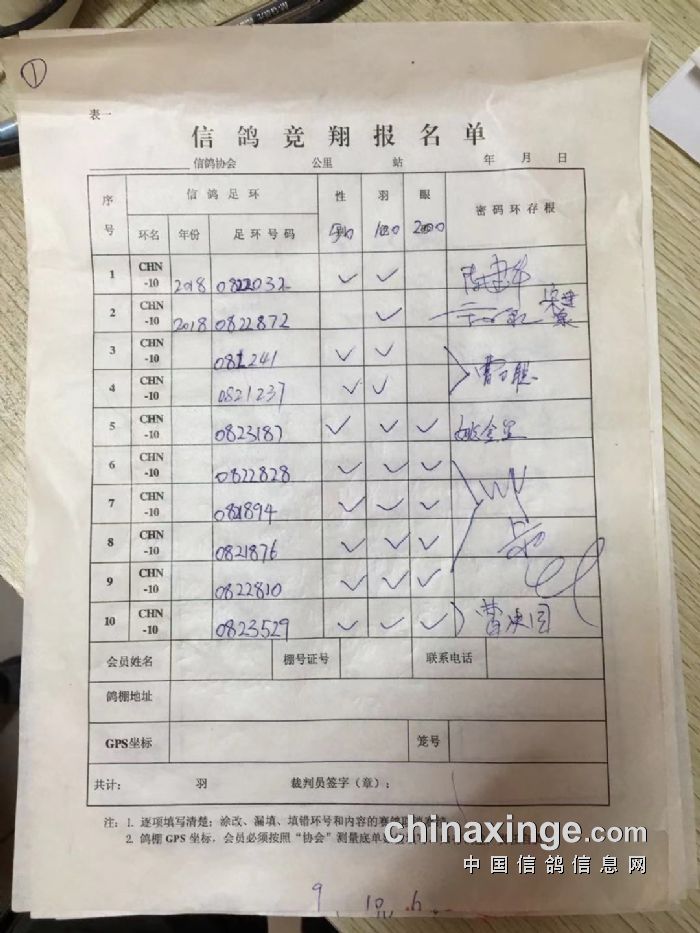 ①
表一
信鸽竞翔报名单
信鸽协会 公里 站 年 月 日
序号 信鸽足环 性 羽 眼 密码环存根
环名 年份 足环号码 500 1000 2000
1 CHN-10 2018 0822032 ✓ ✓
2 CHN-10 2018 0822872 ✓
3 CHN-10 081241 ✓ ✓
4 CHN-10 0821237 ✓ ✓
5 CHN-10 0823187 ✓ ✓ ✓ 姚金
6 CHN-10 0822828 ✓ ✓ ✓
7 CHN-10 081894 ✓ ✓ ✓
8 CHN-10 0821876 ✓ ✓ ✓
9 CHN-10 0822810 ✓ ✓ ✓
10 CHN-10 0823529 ✓ ✓ ✓ 曹
会员姓名 棚号证号 联系电话
鸽棚地址
GPS坐标 笼号
共计: 羽 裁判员签字（章）:
注: 1. 逐项填写清楚; 涂改、漏填、填错环号和内容的赛鸽
2. 鸽棚 GPS 坐标, 会员必须按照“协会”测量底单
chinaxinge.com
中国信鸽信息网
9